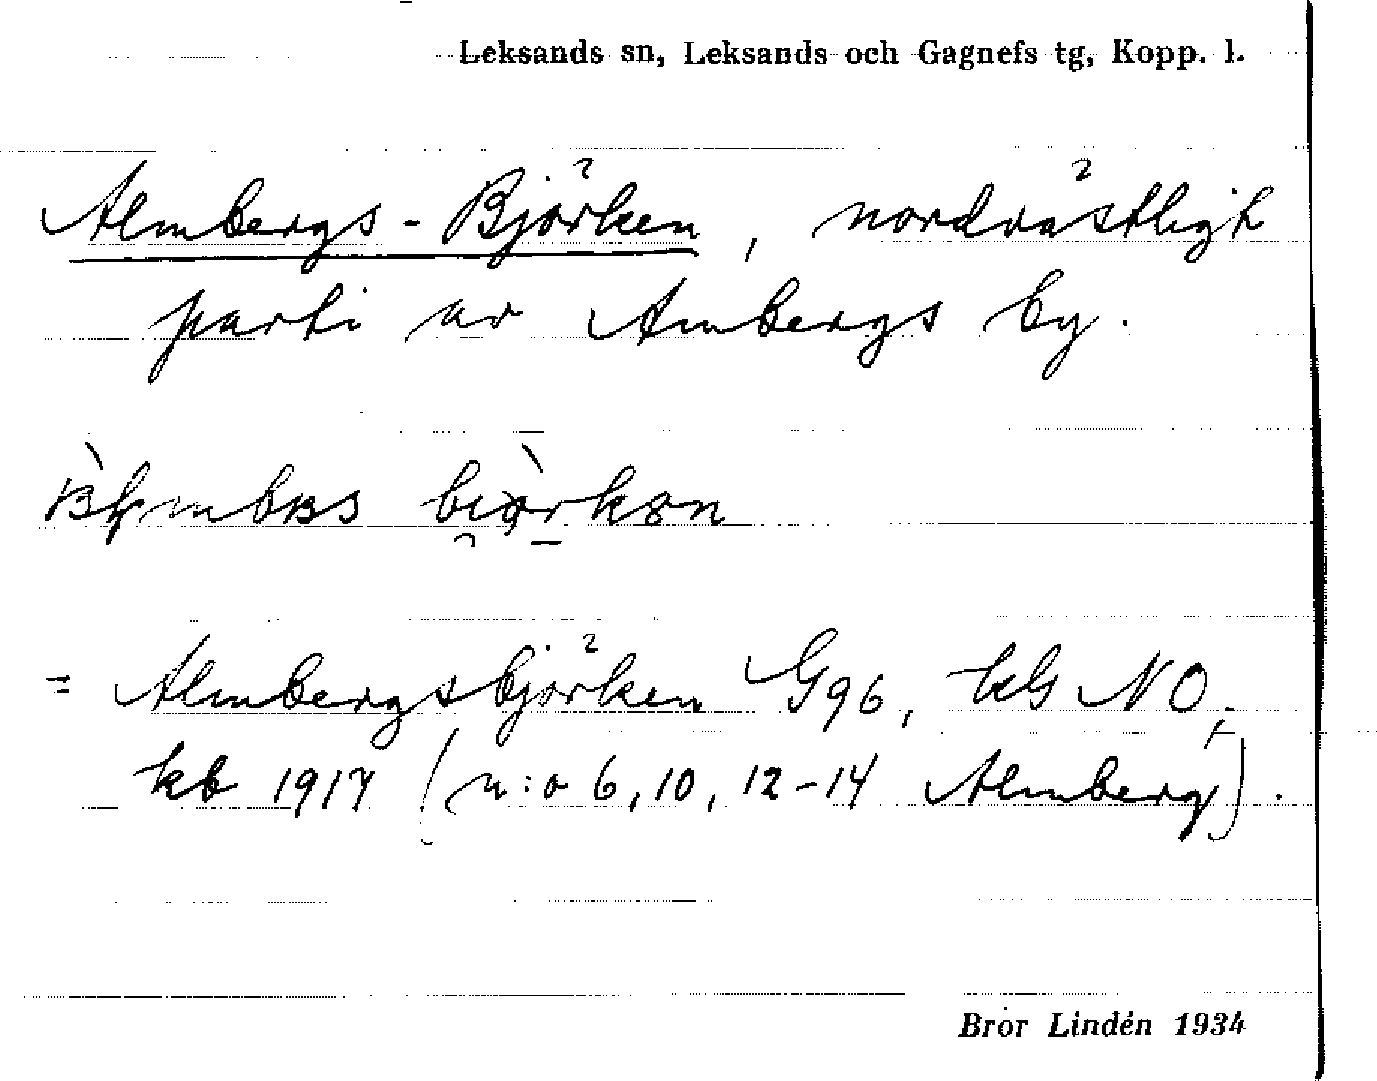 Leksands sn, Leksands och Gagnefs tg, Kopp. l.
Almbergs-Björken, nordvästligt
parti av Ambergs by.
= Almbergsbjörken G96, kG NO,
kb 1917 (n:o 6, 10, 12-14 Almberg).
Bror Lindén 1934